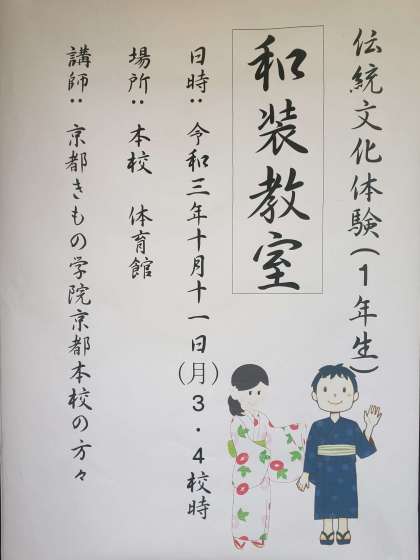 伝統文化体験(1年生)
和装教室
日時：令和三年十月十一日(月)3・4校時
場所：本校　体育館
講師：京都きもの学院京都本校の方々